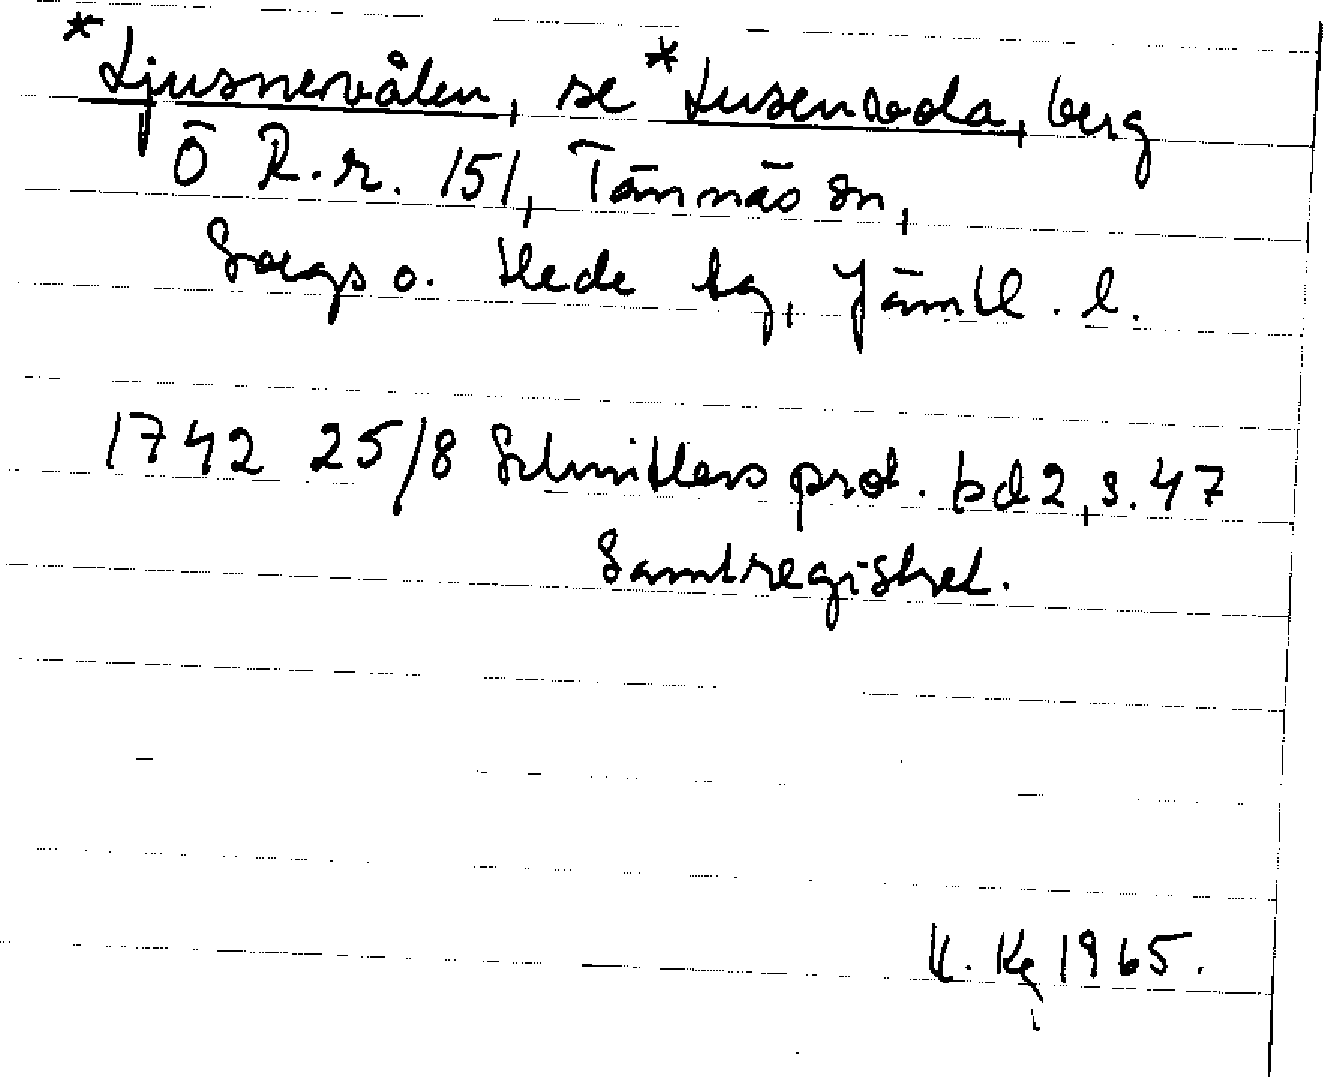 *Ljusnervålen, se *Lusenvola, berg
Ö R.r. 151, Tännäs sn,
Svegs o. Hede tg, Jämtl. l.
1742 25/8 Schnitlers prot. bd 2, s. 47
Samtregistret.
K. Kg 1965.